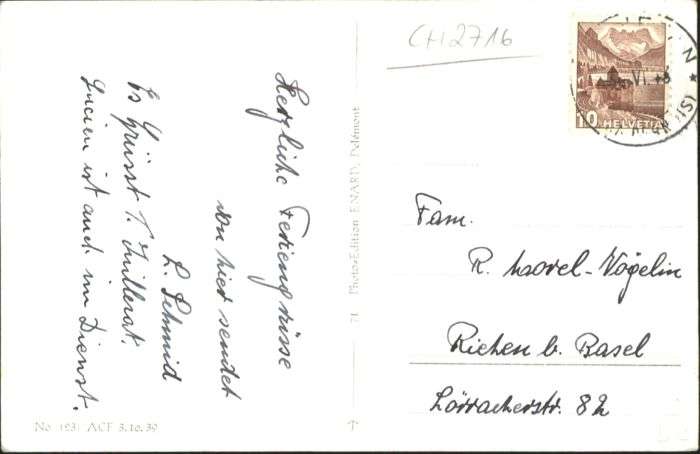 Herzliche Feriengrüsse
von hier sendet
L. Schmid
Es Grüsst T. Juillerat.
Lucien ist auch im Dienst.
No 1931 ACF 3.10.39
71 Photo-Edition ENARD, Delémont
CH2716
VI. 43
10 HELVETIA
Fam.
R. Vogelin
Riehen b. Basel
Lörracherstr. 82